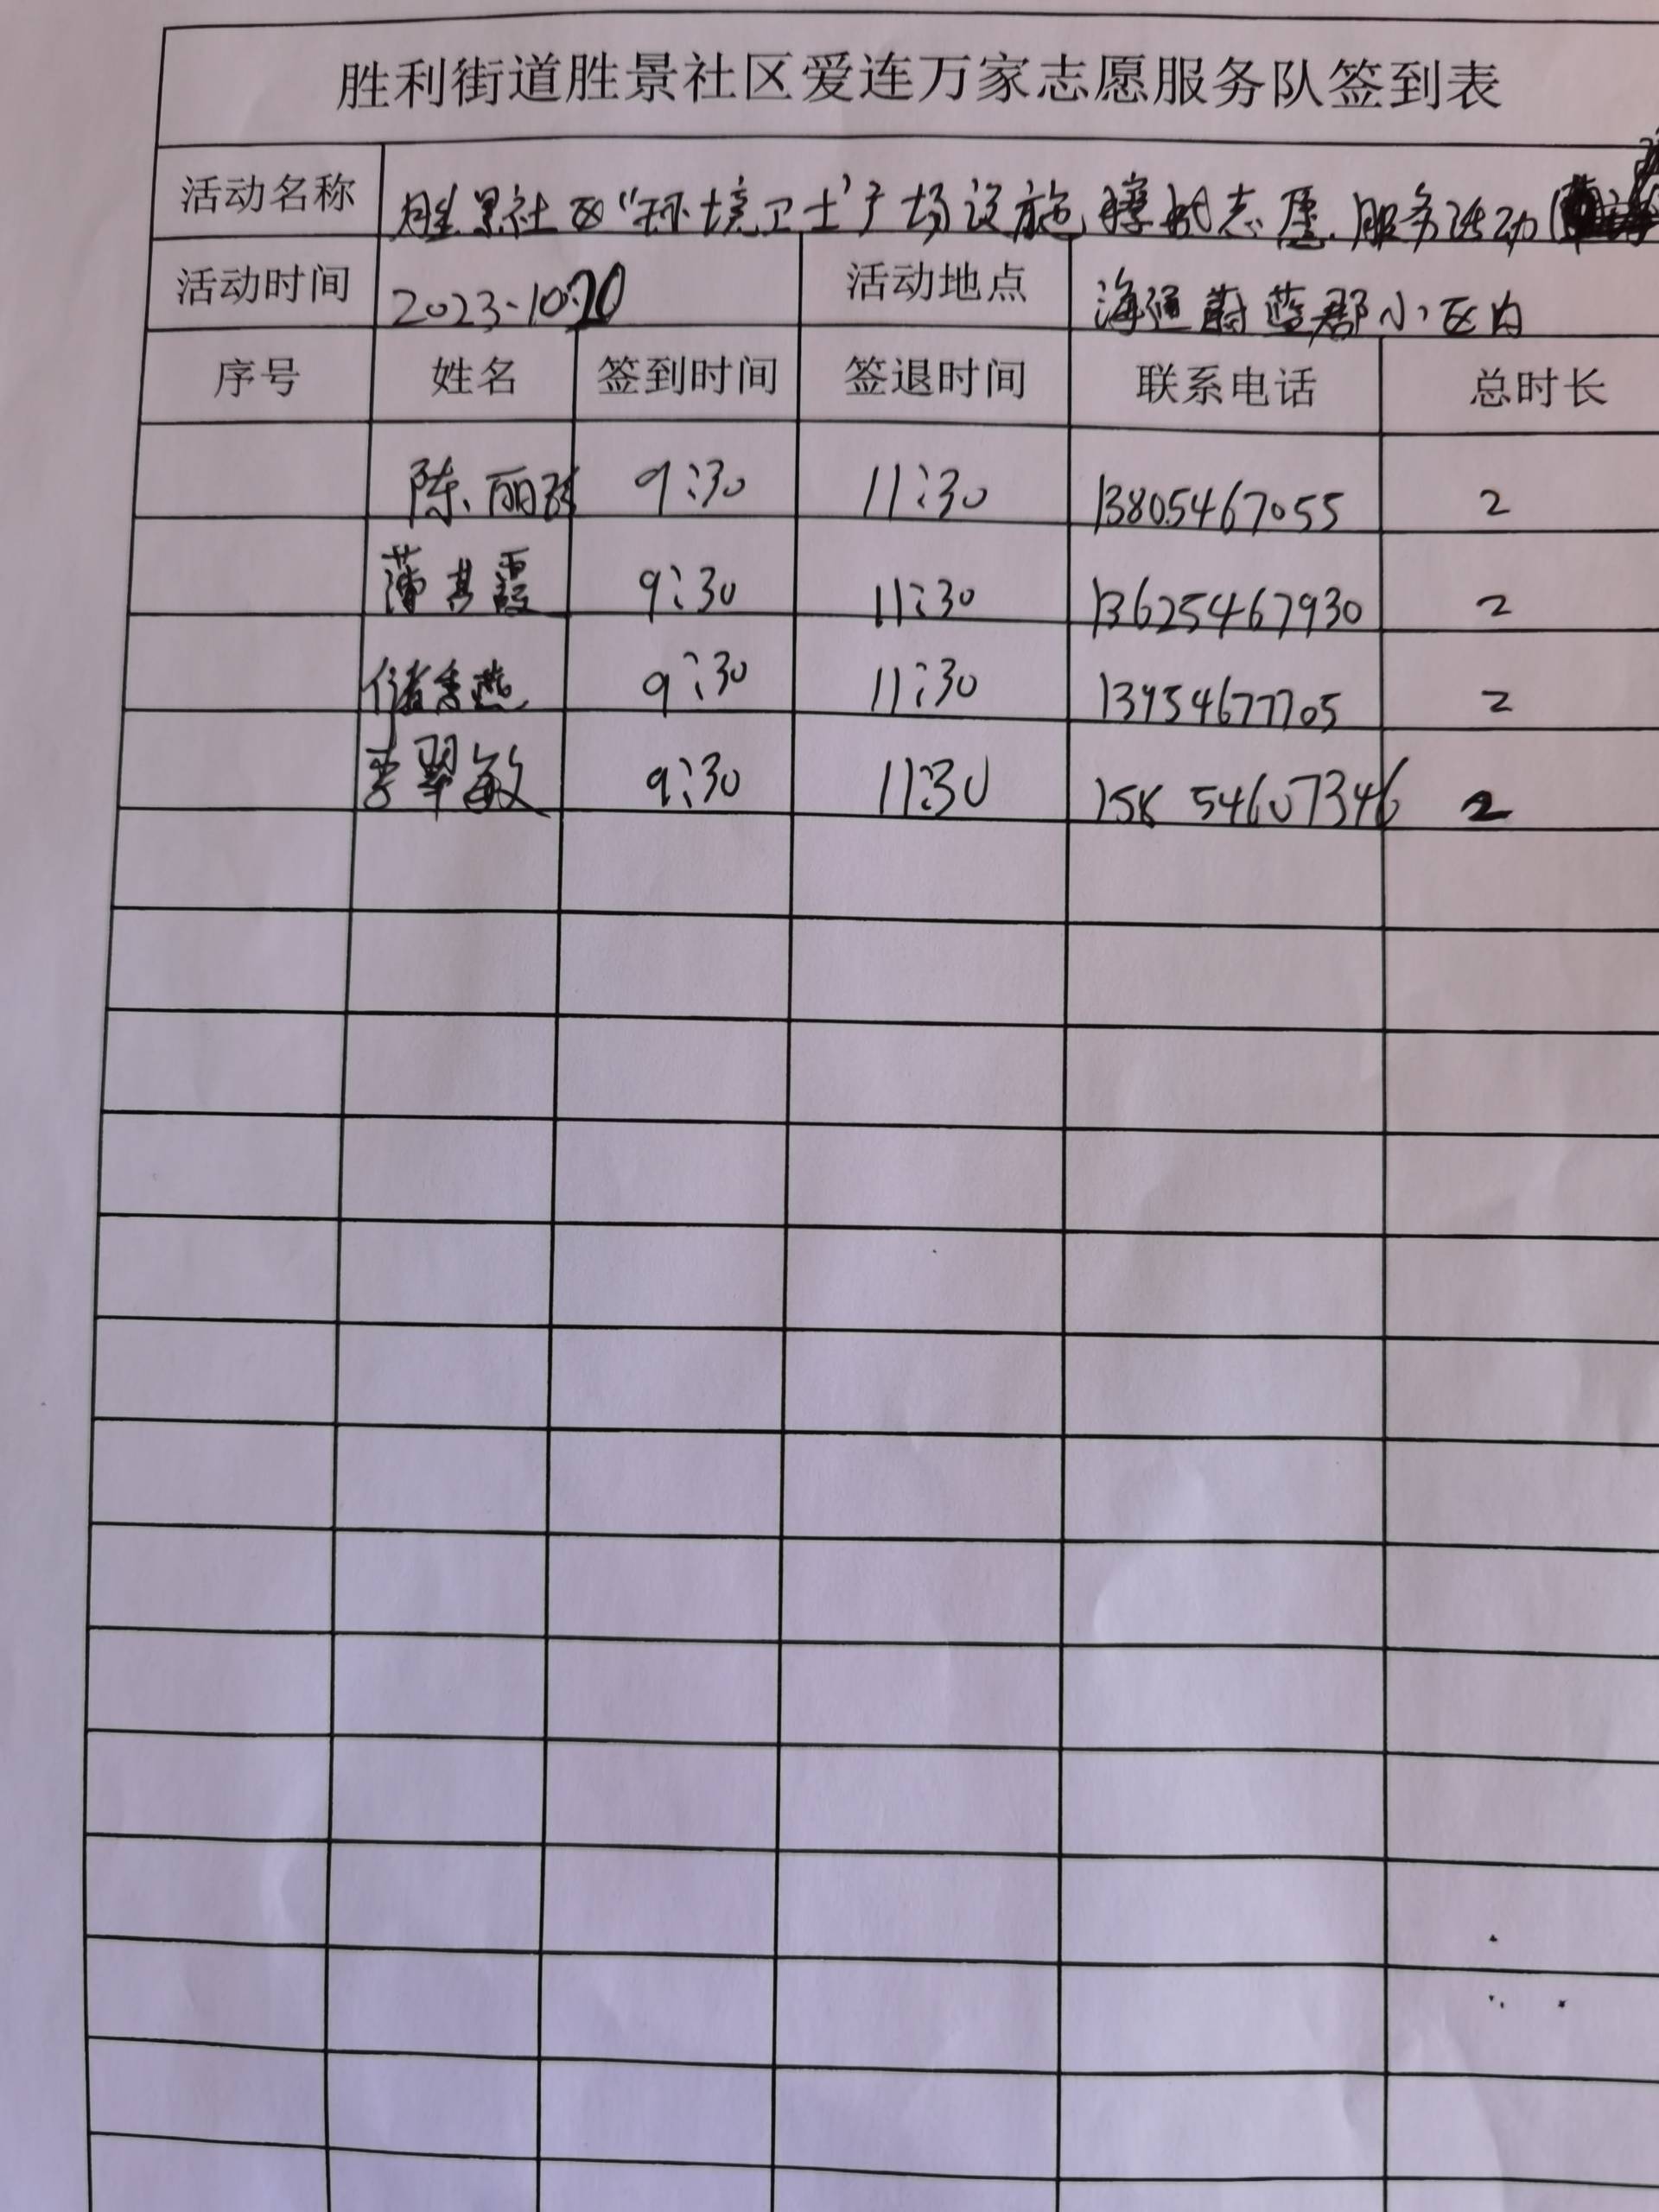 胜利街道胜景社区爱连万家志愿服务队签到表
活动名称 胜景社区“环境卫士”广场设施擦拭志愿服务活动
活动时间 2023-10-20 活动地点 海通蔚蓝郡小区内
序号 姓名 签到时间 签退时间 联系电话 总时长
陈丽 9:30 11:30 13805467055 2
薄其霞 9:30 11:30 13625467930 2
储秀燕 9:30 11:30 13954677705 2
李翠敏 9:30 11:30 2